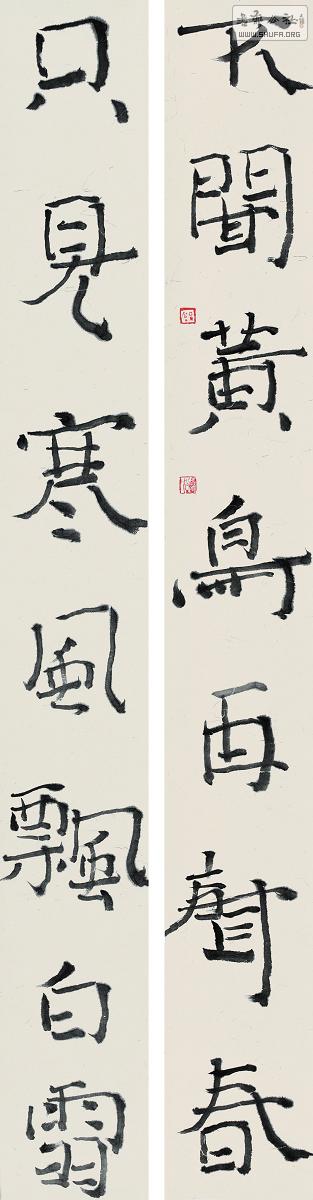 WWW.SHUFA.ORG
不聞黃鳥百聲春
只見寒風飄白雪